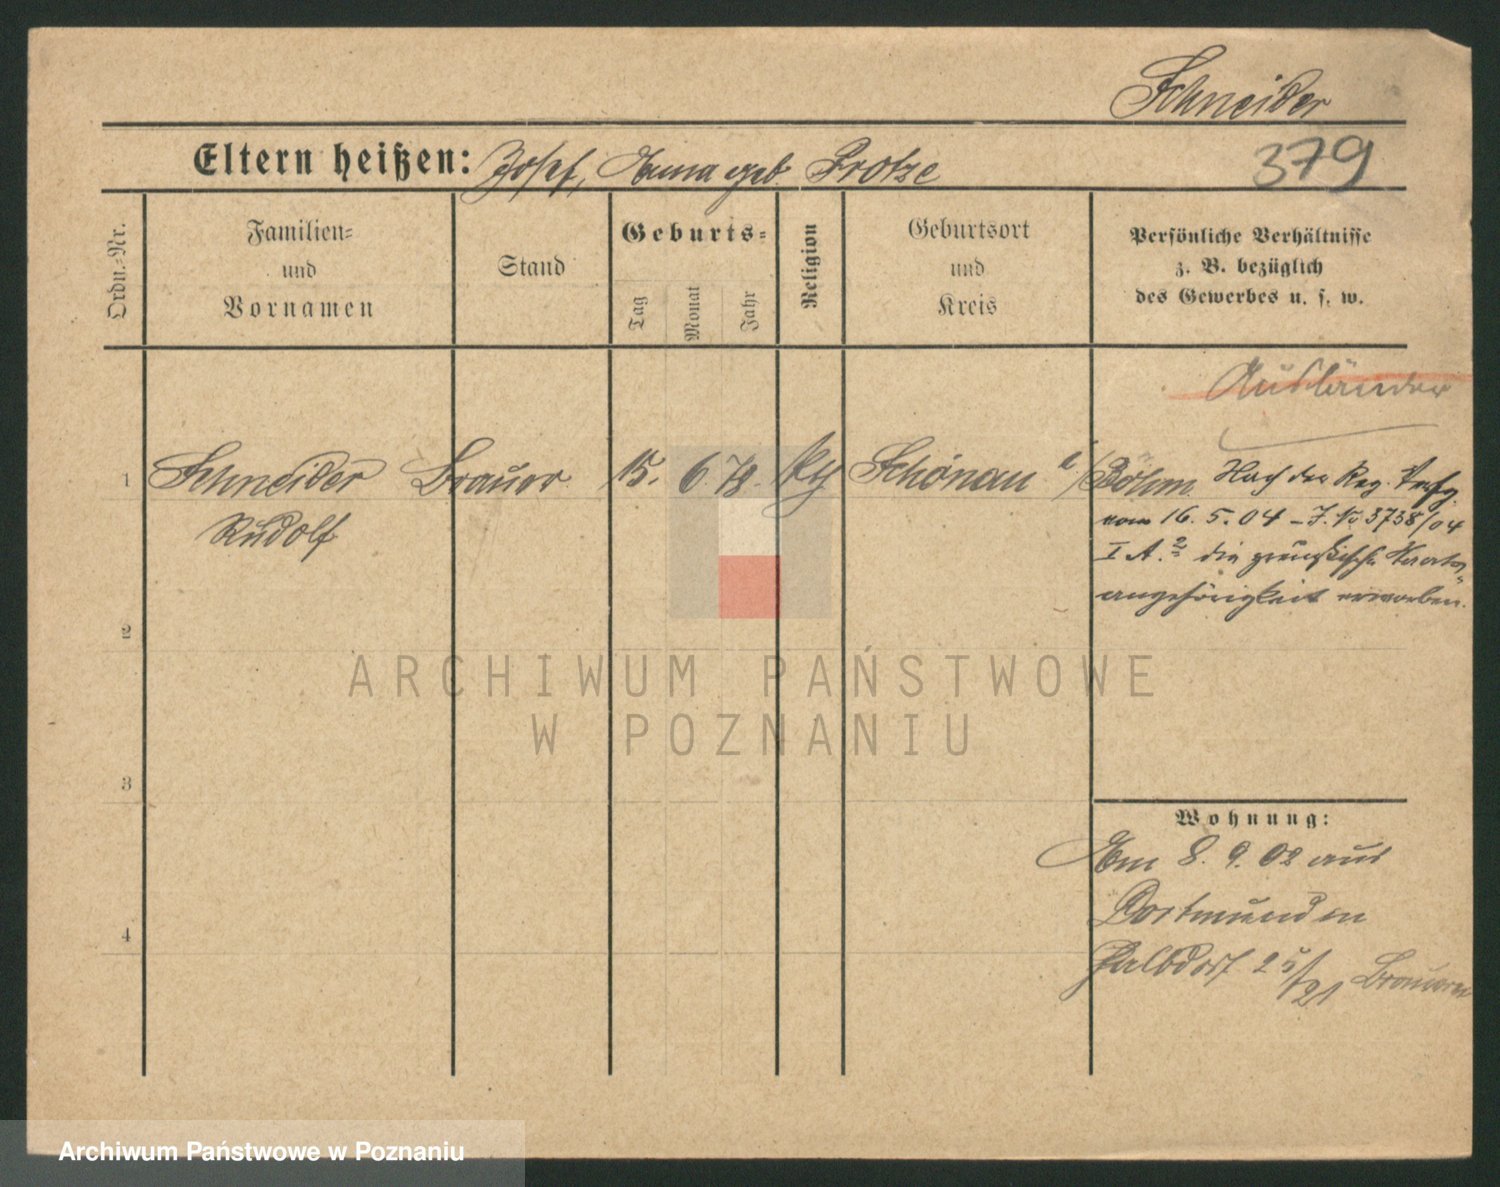 Schneider
Eltern heißen: Josef, Anna geb. Protze
379
Ordn.-Nr.
Familien-
und
Vornamen
Stand
Geburts-
Tag
Monat
Jahr
Religion
Geburtsort
und
Kreis
Persönliche Verhältnisse
z. B. bezüglich
des Gewerbes u. s. w.
Ausländer
1 Schneider Brauer 15. 6. 78. Schönau i/Böhm.
Rudolf
Nach der Reg. Verfg.
vom 16. 5. 04 – J. No 3738/04
I A. 2 die preußische Staats-
angehörigkeit erworben.
2
3
4
Wohnung:
Am 8. 9. 02 aus
Dortmund in
25/21 Brauerei
ARCHIWUM PAŃSTWOWE
W POZNANIU
Archiwum Państwowe w Poznaniu